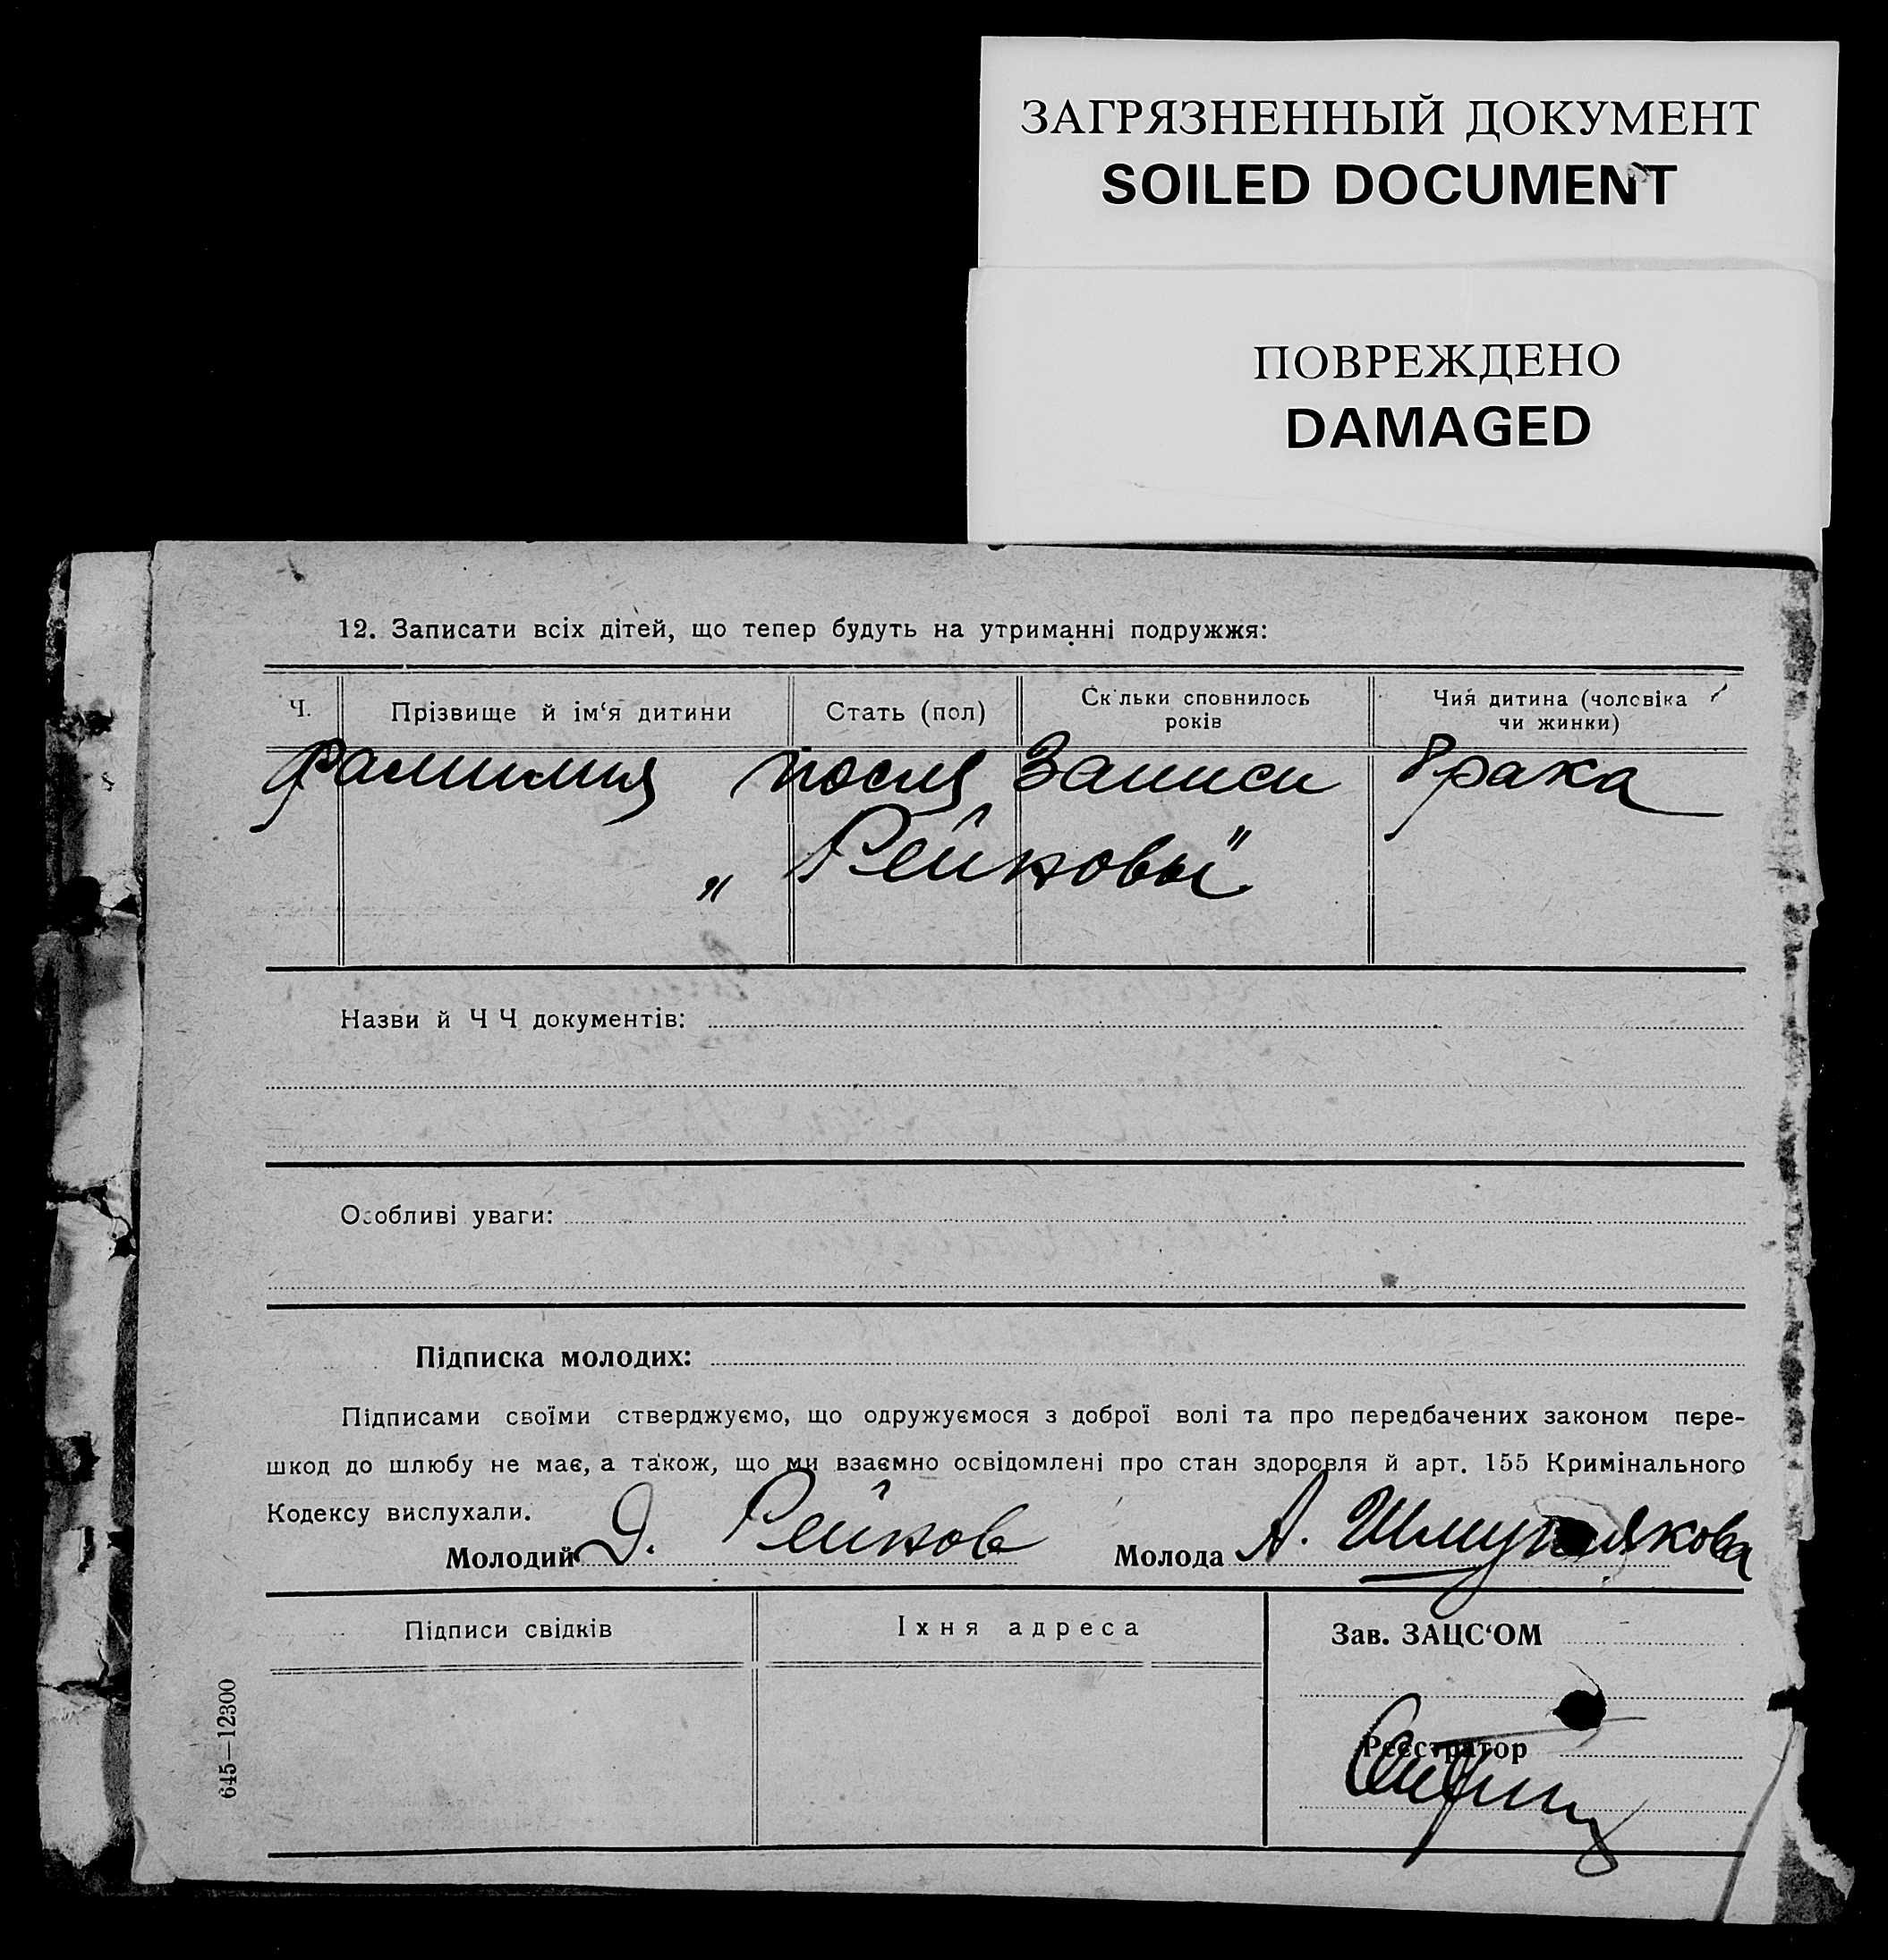 ЗАГРЯЗНЕННЫЙ ДОКУМЕНТ
SOILED DOCUMENT
ПОВРЕЖДЕНО
DAMAGED
12. Записати всіх дітей, що тепер будуть на утриманні подружжя:
Ч.
Прізвище й ім‘я дитини
Стать (пол)
Скільки сповнилось
років
Чия дитина (чоловіка
чи жинки)
Фамилия после записи брака
„ Рейковы"
Назви й Ч Ч документів:
Особливі уваги:
Підписка молодих:
Підписами своїми стверджуємо, що одружуємося з доброї волі та про передбачених законом пере-
шкод до шлюбу не має, а також, що ми взаємно освідомлені про стан здоровля й арт. 155 Кримінального
Кодексу вислухали.
Молодий Д. Рейков Молода А.
Підписи свідків
Іхня адреса
Зав. ЗАЦС‘ОМ
Реєстратор
645—12300